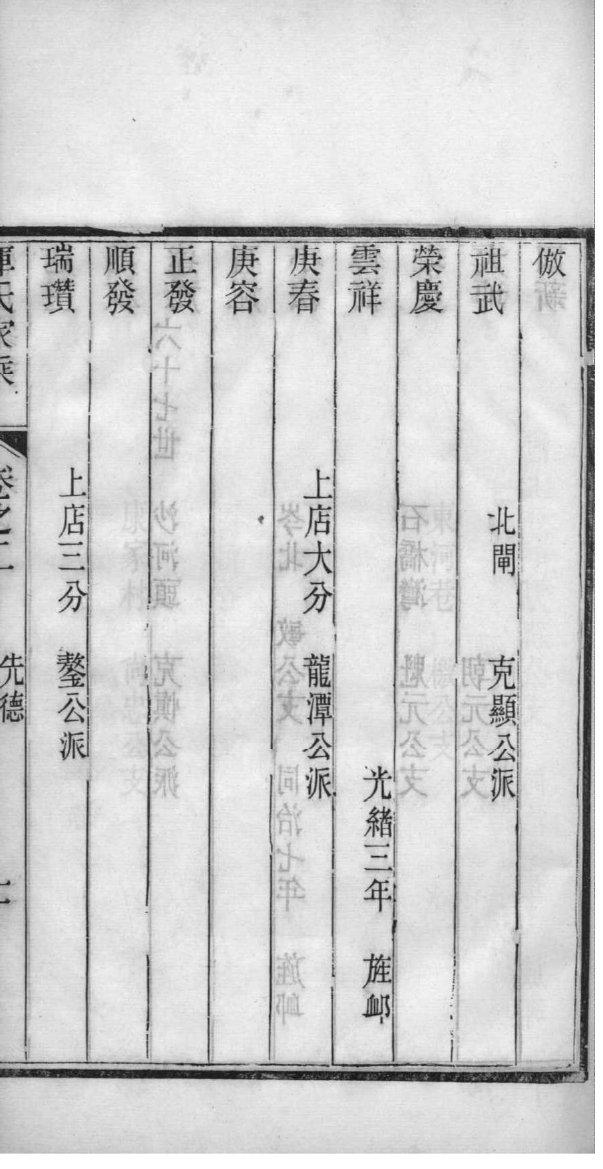 倣
祖武 北閘 克顯公派
榮慶
雲祥 光緒三年 旌卹
庚春 上店大分 龍潭公派
庚容
正發
順發
瑞瓚 上店三分 鏊公派
氏家 卷之二 先德